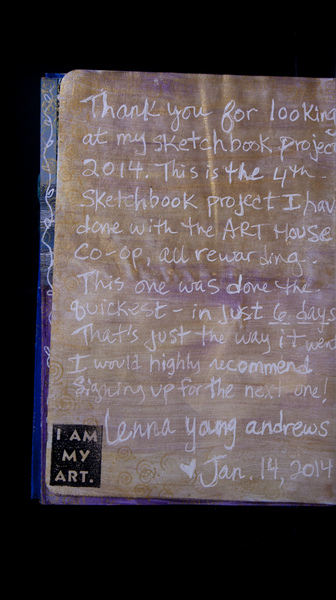 Thank you for looking
at my sketchbook project
2014. This is the 4th
sketchbook project I hav
done with the ART House
co-op, all rewarding.
This one was done the
quickest - in just 6 days
That's just the way it went
I would highly recommend
signing up for the next one!
lenna young andrews
Jan. 14, 2014
I AM
MY
ART.